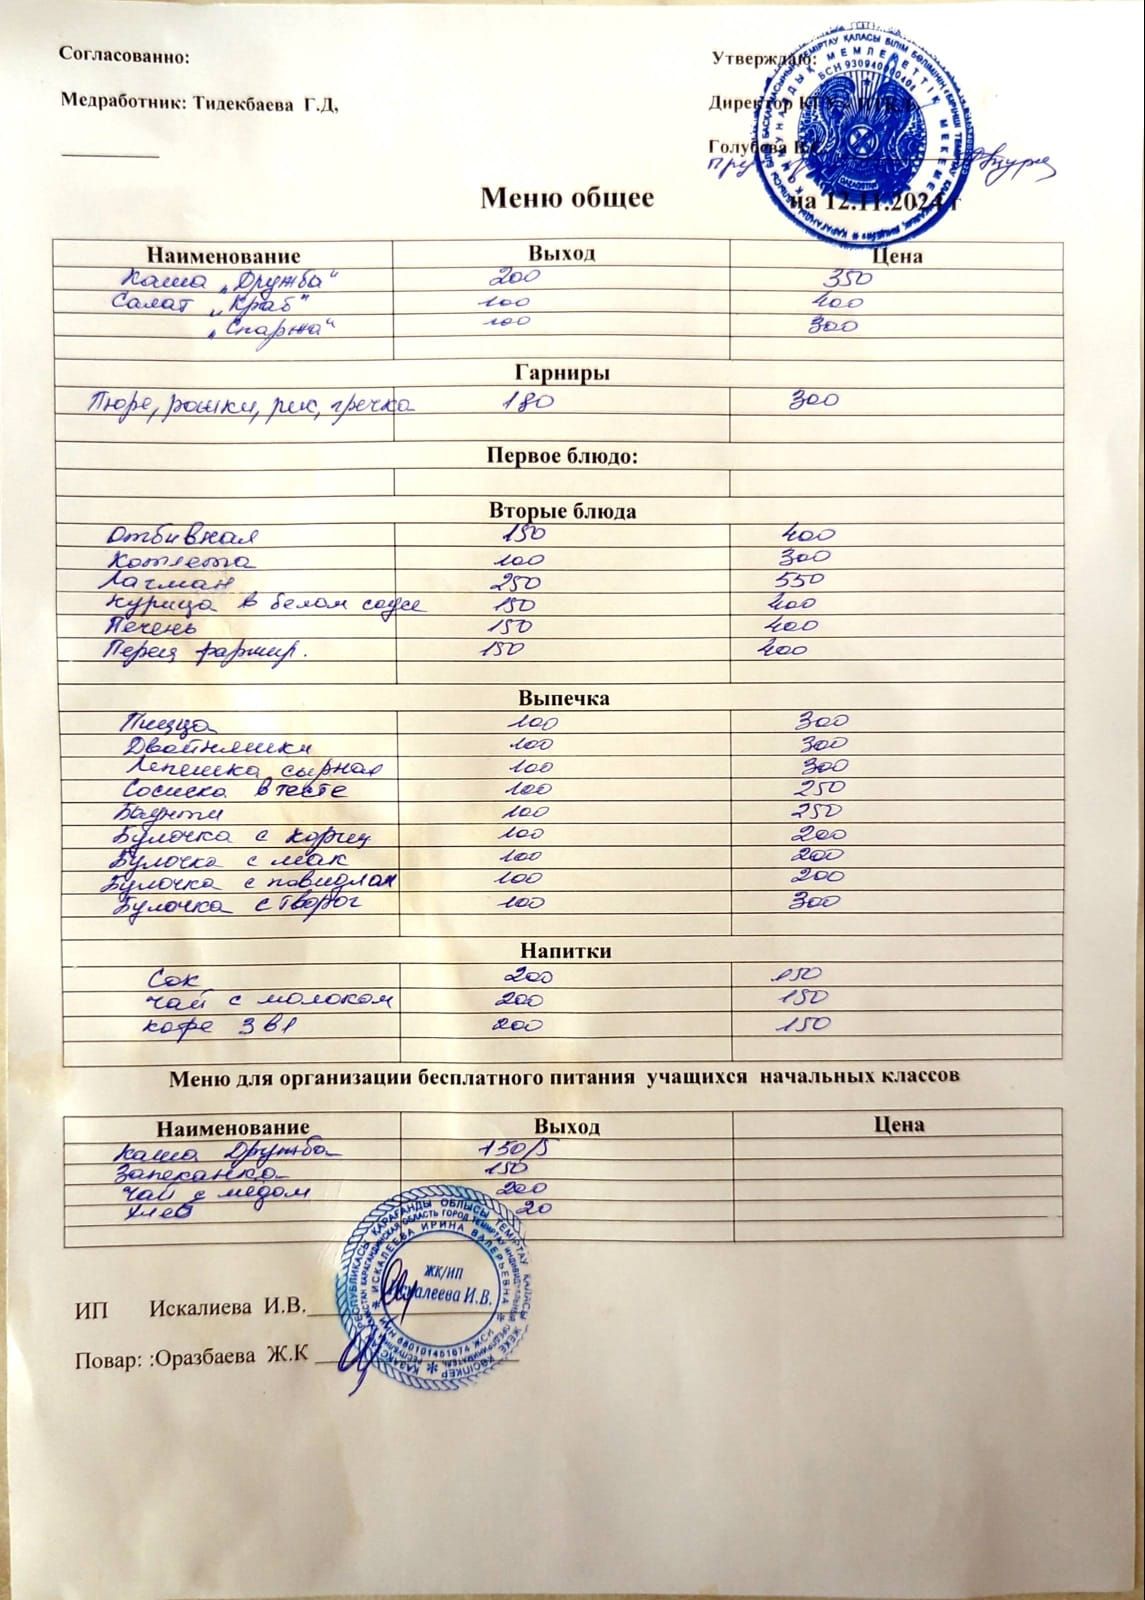 Согласованно:
Утверждаю:
Медработник: Тидекбаева Г.Д,
Директор
Голубева
Меню общее
на 12.11.2024 г
Наименование Выход Цена
Каша „Дружба" 200 350
Салат „Краб" 100 400
„Спаржа" 100 300
Гарниры
Пюре, рожки, рис, гречка 180 300
Первое блюдо:
Вторые блюда
Отбивная 150 400
Котлета 100 300
Лагман 250 550
Курица в белом соусе 150 400
Печень 150 400
Перец фаршир. 150 400
Выпечка
Пицца 100 300
Двойняшки 100 300
Лепешка сырная 100 300
Сосиска в тесте 100 250
Баунти 100 250
Булочка с кориц 100 200
Булочка с мак 100 200
Булочка с повидлам 100 200
Булочка с творог 100 300
Напитки
Сок 200 150
Чай с молоком 200 150
Кофе 3 в 1 200 150
Меню для организации бесплатного питания учащихся начальных классов
Наименование Выход Цена
Каша Дружба 150/5
Запеканка 150
Чай с медом 200
Хлеб 20
ЖК/ИП
Искалеева И.В.
ИП Искалиева И.В.
Повар: :Оразбаева Ж.К